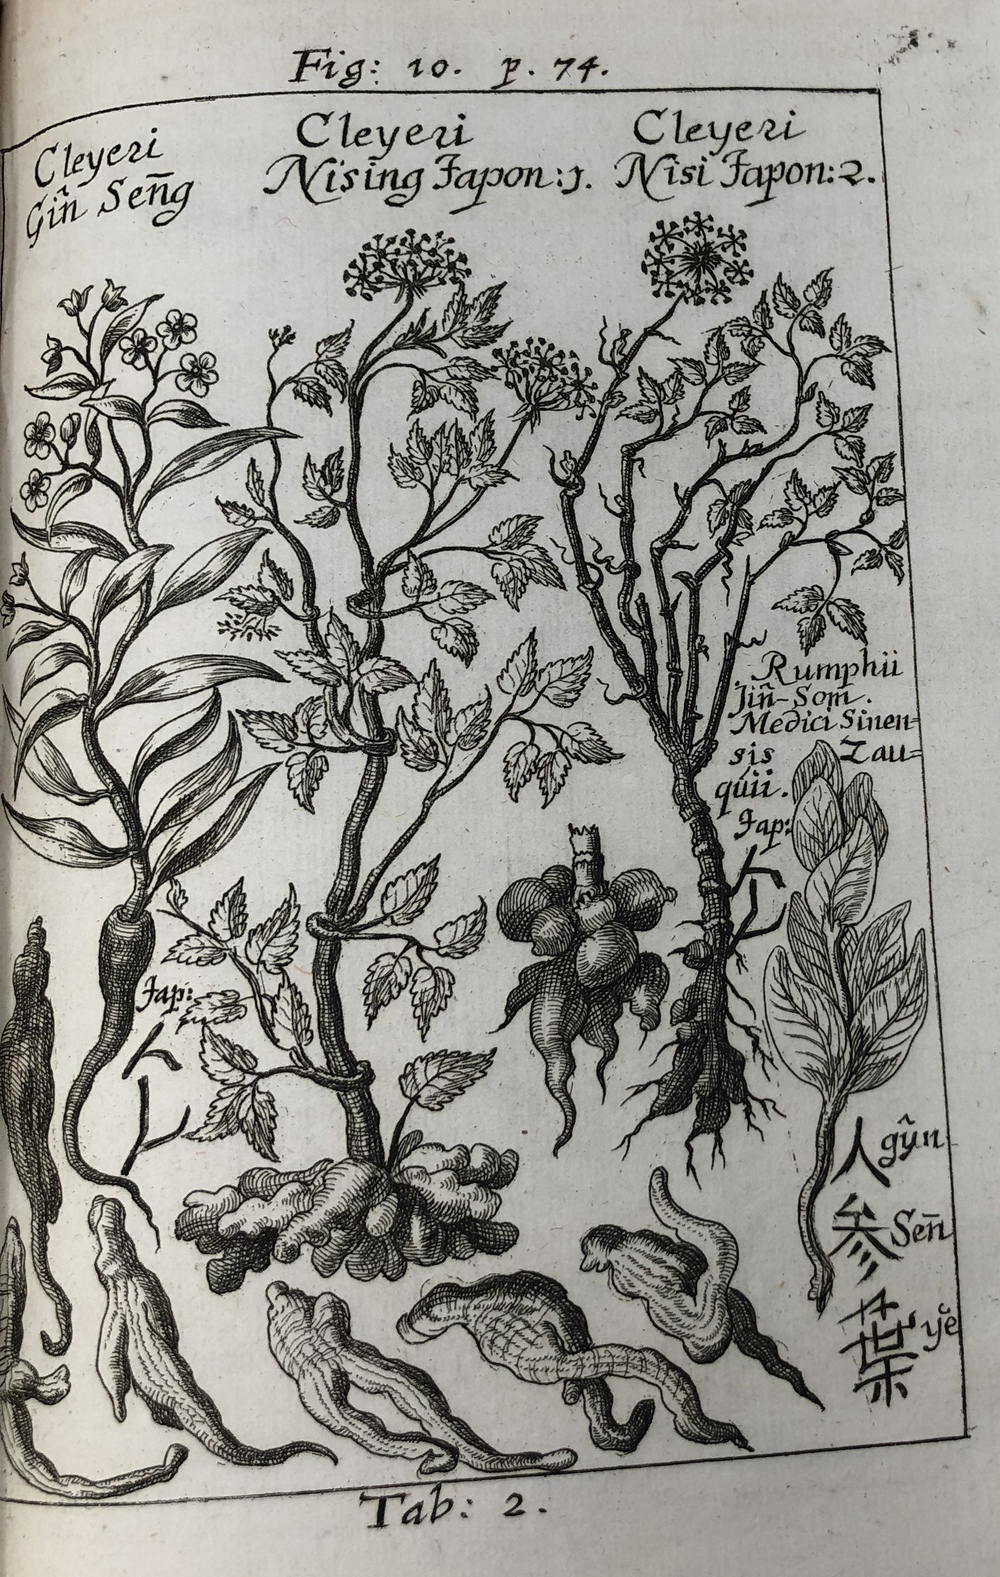 Fig: 10. p. 74.
Cleyeri
Gin̂ Sen̄g
Cleyeri
Nising Japon: 1.
Cleyeri
Nisi Japon: 2.
Rumphii
Jin̂-Som̄.
Medici Sinen=
sis Zau=
quii.
Jap:
人
Jap:
人
人 gŷn
参 Sen̄
葉 yĕ
Tab: 2.